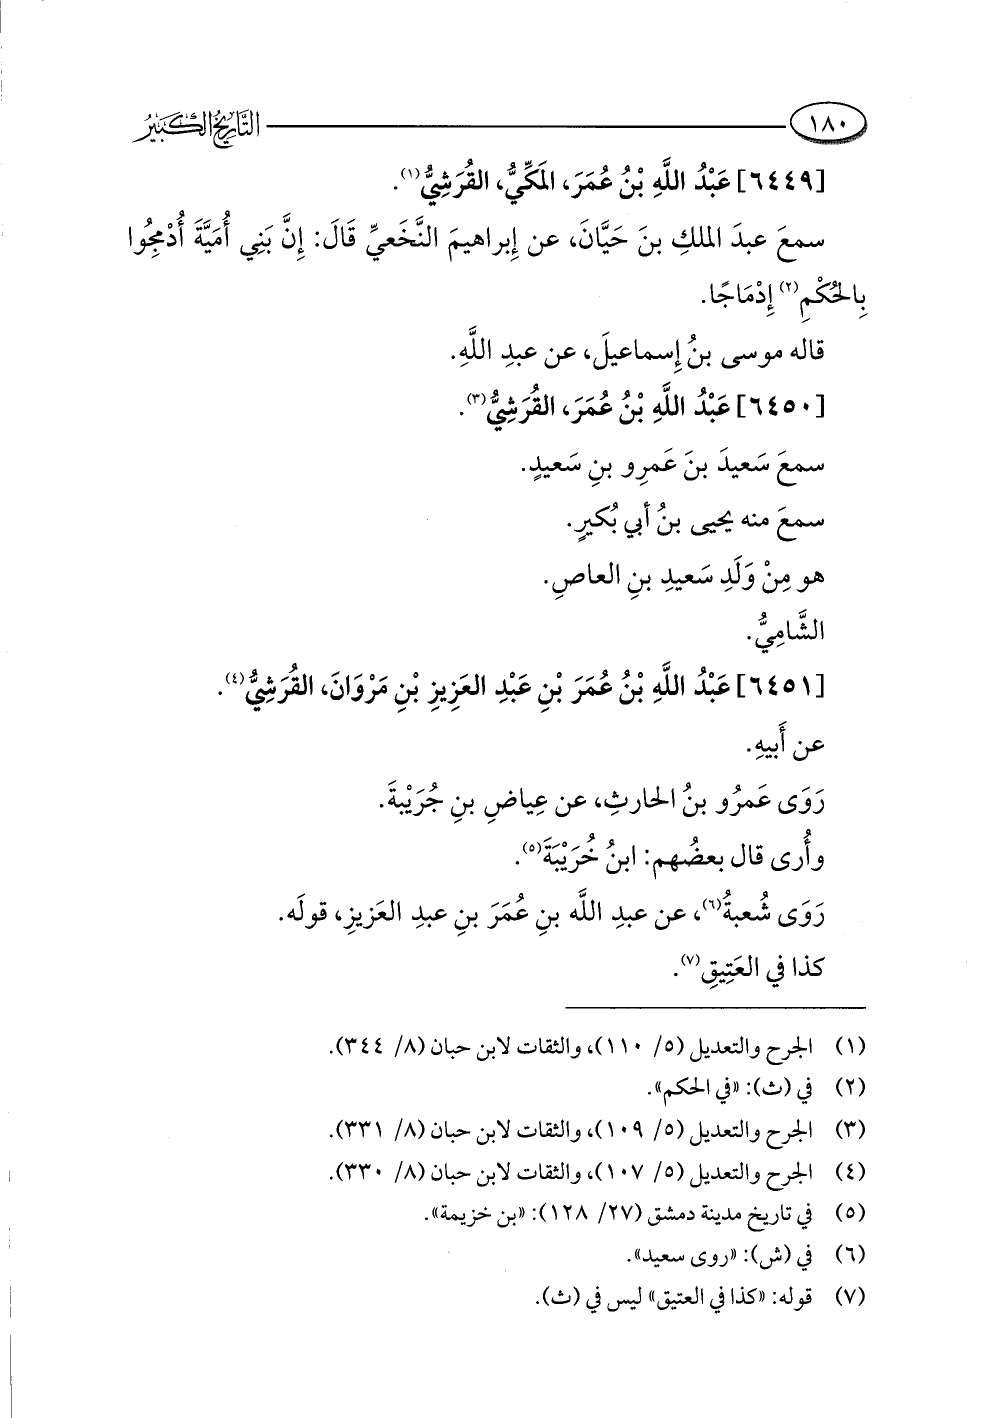 ١٨٠
التَّارِيخُ الكَبِيرُ
[٦٤٤٩] عَبْدُ اللَّهِ بْنُ عُمَرَ، المَكِّيُّ، القُرَشِيُّ(١).
سمعَ عبدَ الملكِ بنَ حَيَّانَ، عن إبراهيمَ النَّخَعيِّ قَالَ: إِنَّ بَنِي أُمَيَّةَ أُدْمِجُوا
بِالحُكْمِ(٢) إِدْمَاجًا.
قاله موسى بنُ إسماعيلَ، عن عبدِ اللَّهِ.
[٦٤٥٠] عَبْدُ اللَّهِ بْنُ عُمَرَ، القُرَشِيُّ(٣).
سمعَ سَعيدَ بنَ عَمرِو بنِ سَعيدٍ.
سمعَ منه يحيى بنُ أبي بُكيرٍ.
هو مِنْ وَلَدِ سَعيدِ بنِ العاصِ.
الشَّامِيُّ.
[٦٤٥١] عَبْدُ اللَّهِ بْنُ عُمَرَ بْنِ عَبْدِ العَزِيزِ بْنِ مَرْوَانَ، القُرَشِيُّ(٤).
عن أَبيهِ.
رَوَى عَمرُو بنُ الحارثِ، عن عِياضِ بنِ جُرَيْبةَ.
وأُرى قال بعضُهم: ابنُ خُرَيْبَةَ(٥).
رَوَى شُعبةُ(٦)، عن عبدِ اللَّه بنِ عُمَرَ بنِ عبدِ العَزيزِ، قولَه.
كذا في العَتِيقِ(٧).
(١) الجرح والتعديل (٥/ ١١٠)، والثقات لابن حبان (٨/ ٣٤٤).
(٢) في (ث): «في الحكم».
(٣) الجرح والتعديل (٥/ ١٠٩)، والثقات لابن حبان (٨/ ٣٣١).
(٤) الجرح والتعديل (٥/ ١٠٧)، والثقات لابن حبان (٨/ ٣٣٠).
(٥) في تاريخ مدينة دمشق (٢٧/ ١٢٨): «بن خزيمة».
(٦) في (ش): «روى سعيد».
(٧) قوله: «كذا في العتيق» ليس في (ث).